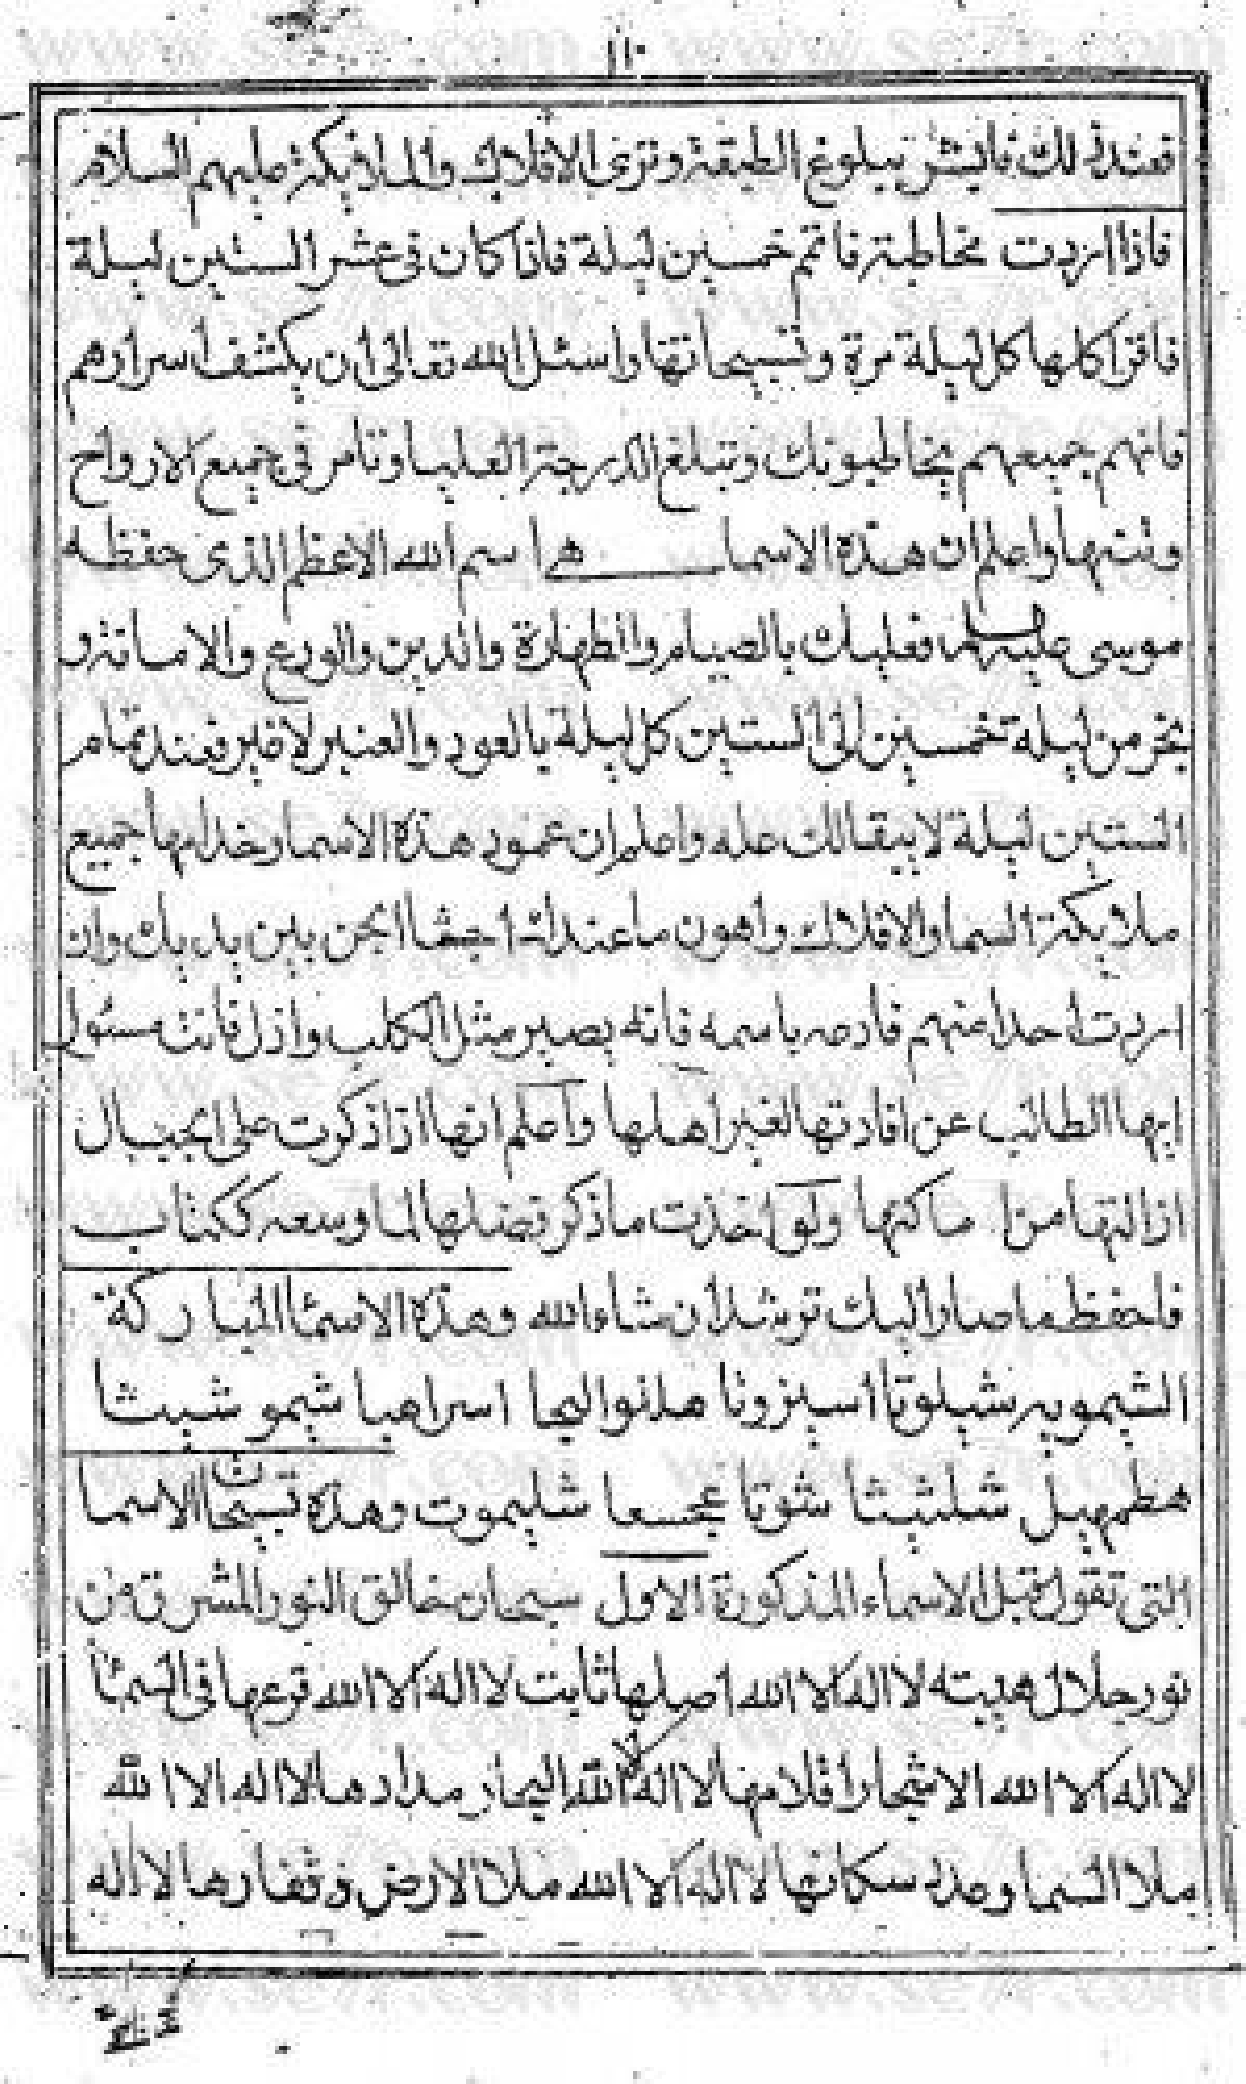 فعند ذلك فابشر ببلوغ الطبقة وترى الافلاك والملايكة عليهم السلام
فاذا اردت مخاطبة فاتم خمسين ليلة فاذا كان فى عشر الستين ليلة
فاقرا كلها كل ليلة مرة وتسبيحاتها واسئل الله تعالى ان يكشف اسرارهم
فانهم جميعهم يخاطبونك وتبلغ الدرجة العليا وتامر فى جميع الارواح
وتنهها واعلم ان هذه الاسما ها اسم الله الاعظم الذى حفظه
موسى عليه فعليك بالصيام والطهارة والدين والورع والامانة و
بخر من ليلة خمسين الى الستين كل ليلة بالعود والعنبر لا غير فعند تمام
الستين ليلة لا يبقا لك عله واعلم ان عمود هذه الاسما وخدامها جميع
ملايكة السما والافلاك واهون ما عندك الجن بين يديك وان
اردت احدا منهم فادعه باسمه فانه يصير مثل الكلب واذل فانت مسئول
ايها الطالب عن افادتها لغير اهلها واعلم انها اذا ذكرت على الجبال
ازالتها من اماكنها ولو اخذت ما ذكر فضلها لما وسعه ككتاب
فاحفظ ما صار اليك ترشد ان شاء الله وهذه الاسما المباركة
الشيمويه شيلوتا اسبزونا اسراعيا شيمو شيثا
هظمهيل شلشيثا شوتا شليموت وهذه تسبيحات الاسما
التى تقول قبل الاسماء المذكورة الاول سبحان خالق النور المشرق من
نور جلال هيبته لا اله الا الله اصلها ثابت لا اله الا الله فرعها فى السما
لا اله الا الله الاشجار اقلامها لا اله الا الله البحار مدادها لا اله الا الله
ملا السما وعدد سكانها لا اله الا الله ملا الارض وقفارها لا اله